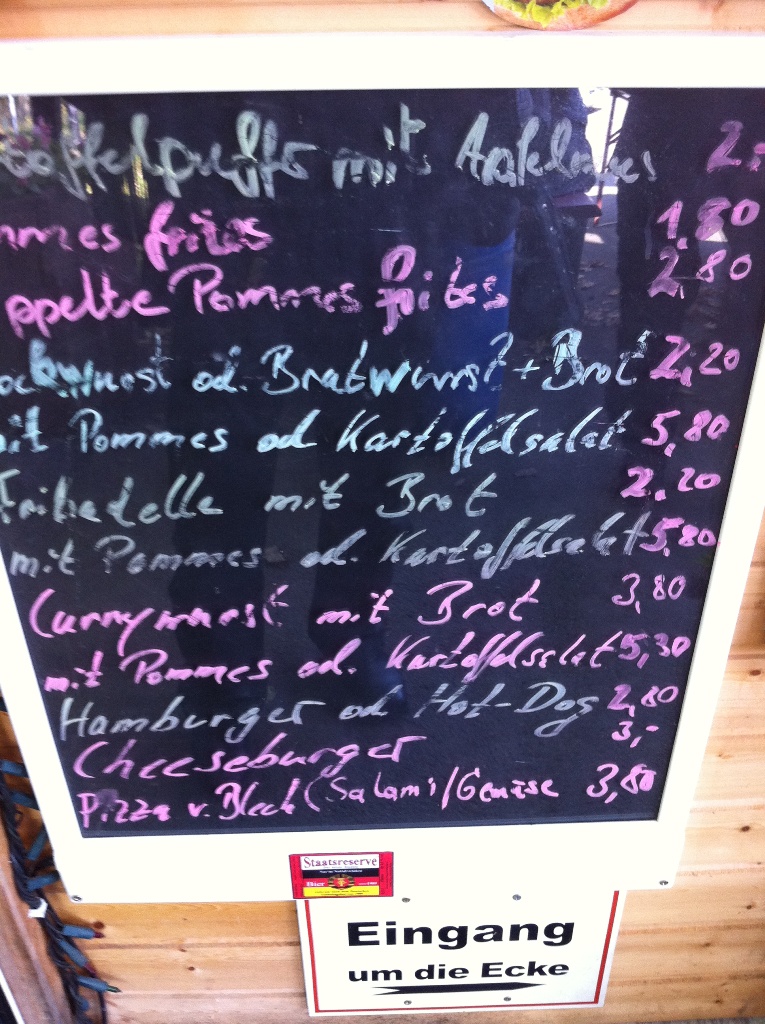 offelpuffr mit Apfelmus 2,
mmes frites 1,80
ppelte Pommes frites 2,80
ockwurst od. Bratwurst + Brot 2,20
it Pommes od Kartoffelsalat 5,80
Frikadelle mit Brot 2.20
mit Pommes od. Kartoffelsalat 5,80
Currywurst mit Brot 3,80
mit Pommes od. Kartoffelsalat 5,30
Hamburger od Hot-Dog 2,80
Cheeseburger 3,-
Pizza v. Blech (Salami/Gemüse 3,80
Staatsreserve
Bier
Eingang
um die Ecke